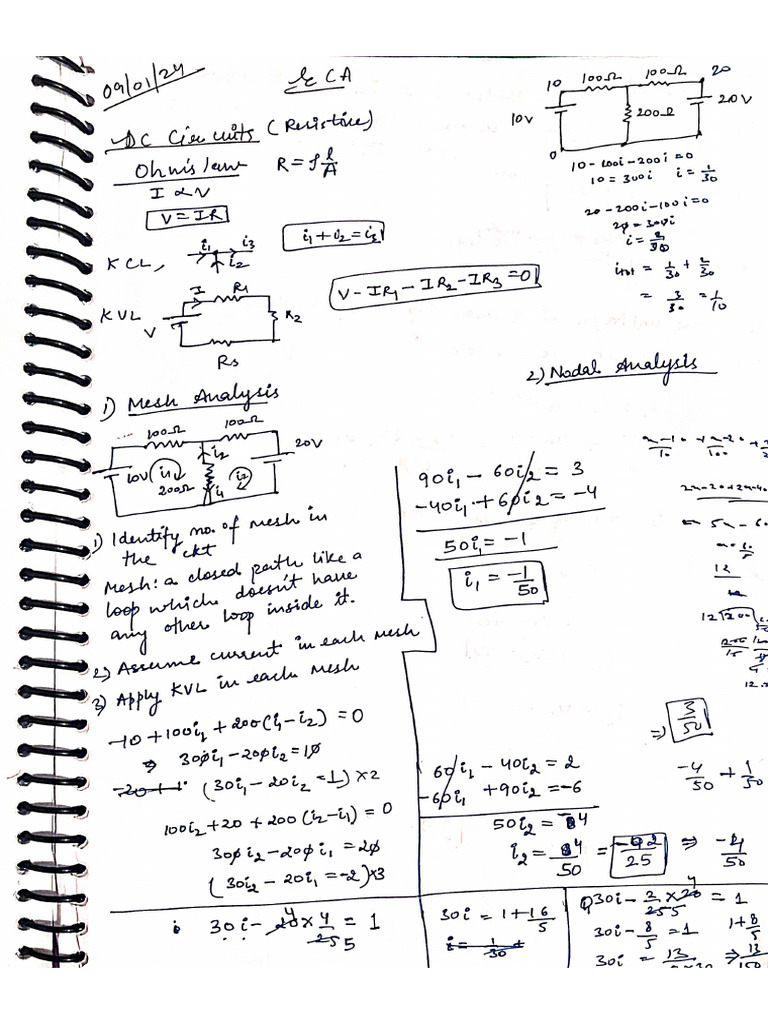 09/01/24
ECA
DC Circuits (Resistive)
Ohm's law R = ρ l/A
I ∝ V
V = IR
KCL, i1 i3 i2
i1 + i2 = i3
KVL V I R1 R2 R3
V - IR1 - IR2 - IR3 = 0
10 100Ω 100Ω 20
10V 200Ω 20V
0
10 - 100i - 200i = 0
10 = 300i i = 1/30
20 - 200i - 100i = 0
20 = 300i
i = 2/30
itot = 1/30 + 2/30
= 3/30 = 1/10
1) Mesh Analysis
100Ω 100Ω
10V i1 200Ω i2 i2 20V
i1
1) Identify no. of mesh in
the ckt
Mesh: a closed path like a
loop which doesn't have
any other loop inside it.
2) Assume current in each mesh
3) Apply KVL in each mesh
-10 + 100i1 + 200(i1 - i2) = 0
⇒ 300i1 - 200i2 = 10
(30i1 - 20i2 = 1) × 2
100i2 + 20 + 200(i2 - i1) = 0
300i2 - 200i1 = 20
(30i2 - 20i1 = -2) × 3
90i1 - 60i2 = 3
-40i1 + 60i2 = -4
50i1 = -1
i1 = -1/50
60i1 - 40i2 = 2
-60i1 + 90i2 = -6
50i2 = -4
i2 = 4/50 = -02/25 ⇒ -4/50
2) Nodal Analysis
⇒ 3/50
-4/50 + 1/50
30i - 20 × 4/25 = 1
30i = 1 + 16/5
i = 1/30 +
30i - 2/25 × 20 = 1
30i - 8/5 = 1 1 + 8/5
30i = 13